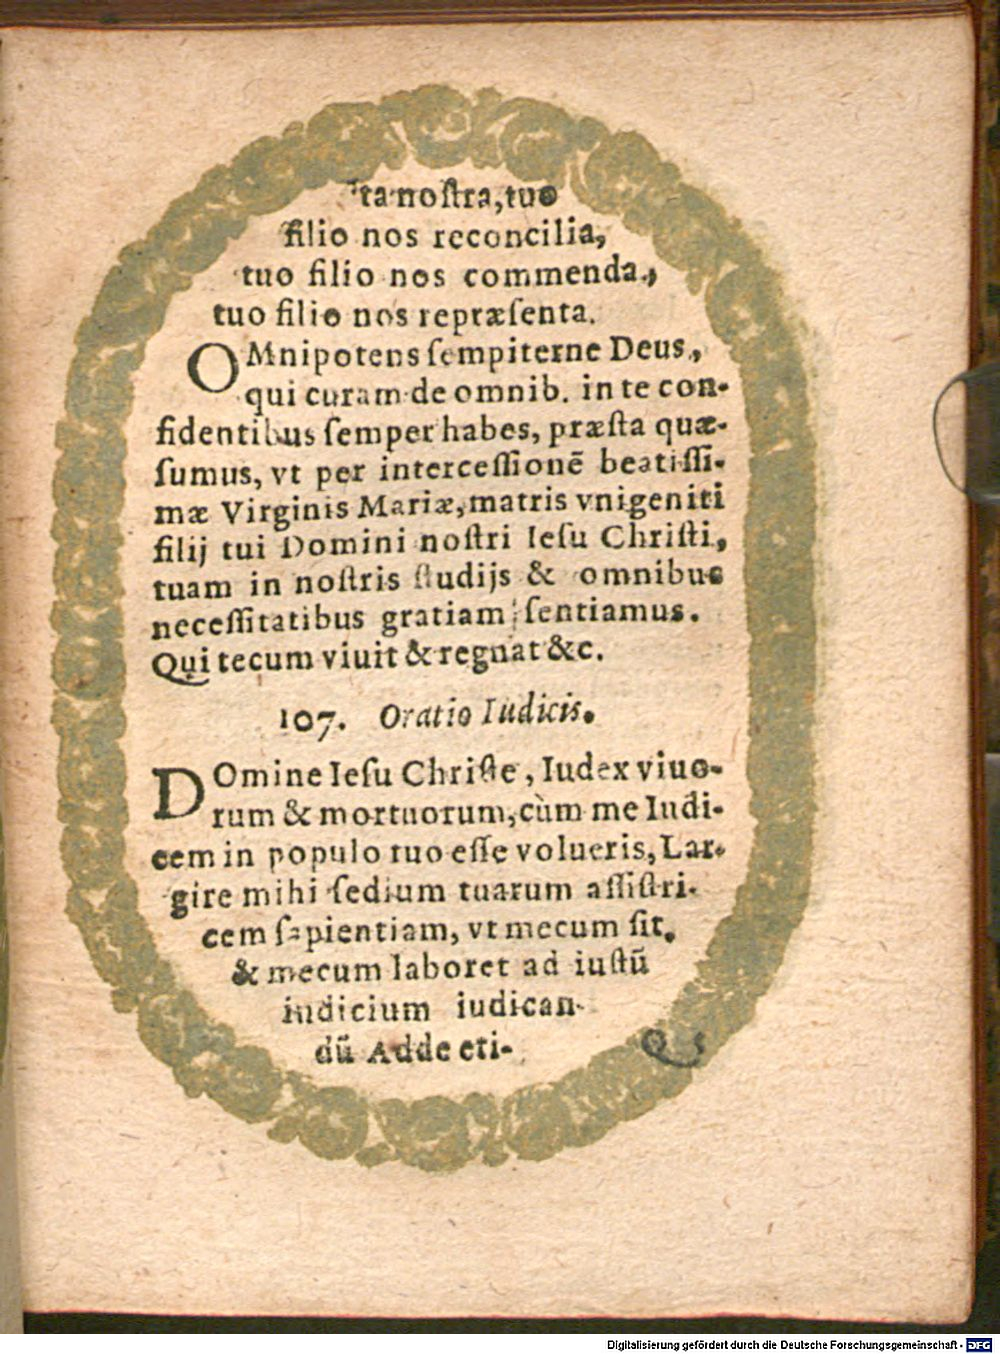 ta noſtra, tuo
filio nos reconcilia,
tuo filio nos commenda,
tuo filio nos repræſenta.
OMnipotens ſempiterne Deus,
qui curam de omnib. in te con-
fidentibus ſemper habes, præſta quæ-
ſumus, vt per interceſſionē beatiſſi-
mæ Virginis Mariæ, matris vnigeniti
filij tui Domini noſtri Ieſu Chriſti,
tuam in noſtris ſtudijs & omnibus
neceſſitatibus gratiam ſentiamus.
Qui tecum viuit & regnat &c.
107. Oratio Iudicis.
DOmine Ieſu Chriſte, Iudex viuo-
rum & mortuorum, cùm me Iudi-
cem in populo tuo eſſe volueris, Lar-
gire mihi ſedium tuarum aſſiſtri-
cem ſapientiam, vt mecum ſit,
& mecum laboret ad iuſtū
iudicium iudican-
dū Adde eti-
Q 5
Digitalisierung gefördert durch die Deutsche Forschungsgemeinschaft - DFG